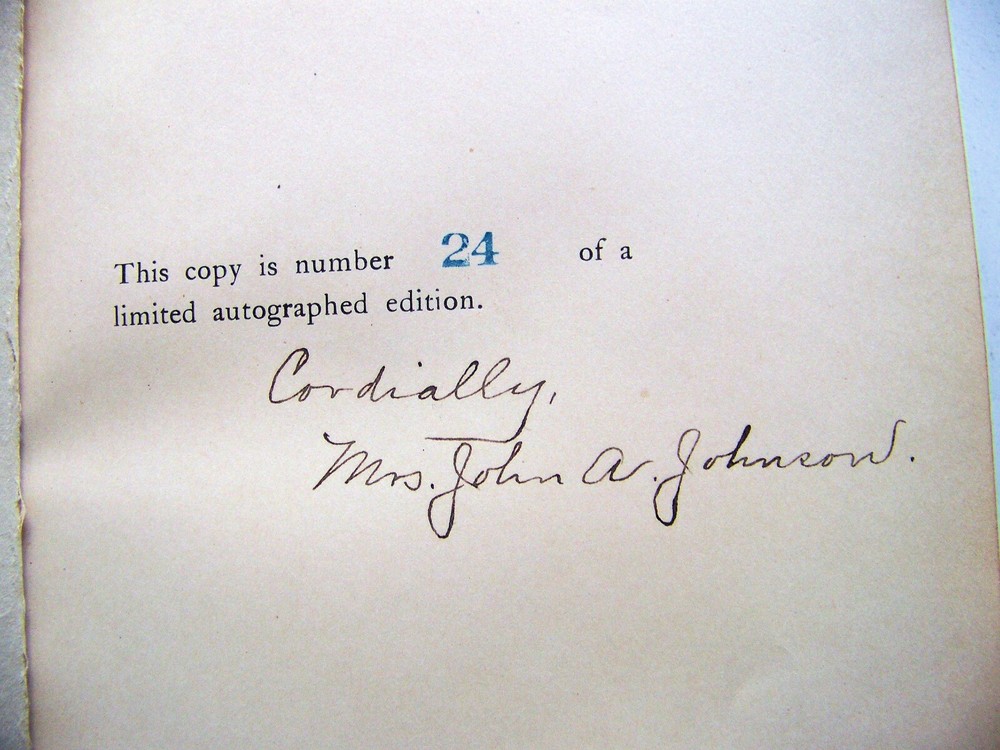 This copy is number 24 of a
limited autographed edition.
Cordially,
Mrs. John A. Johnson.